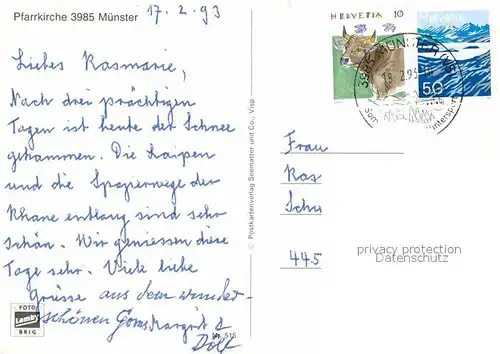 Pfarrkirche 3985 Münster
17.2.93
Liebes Rasmarie,
Nach drei prächtigen
Tagen ist heute der Schnee
gekommen. Die Loipen
und die Spazierwege der
Rhone entlang sind sehr
schön. Wir geniessen diese
Tage sehr. Viele liebe
Grüsse aus dem wunder-
schönen Goms Margrit &
FOTO
BRIG
515
© Postkartenverlag Seematter und Co., Visp
HELVETIA 10
Helvetia
50
3985 MÜNSTER
Frau
Ros
Schu
445
privacy protection
Datenschutz